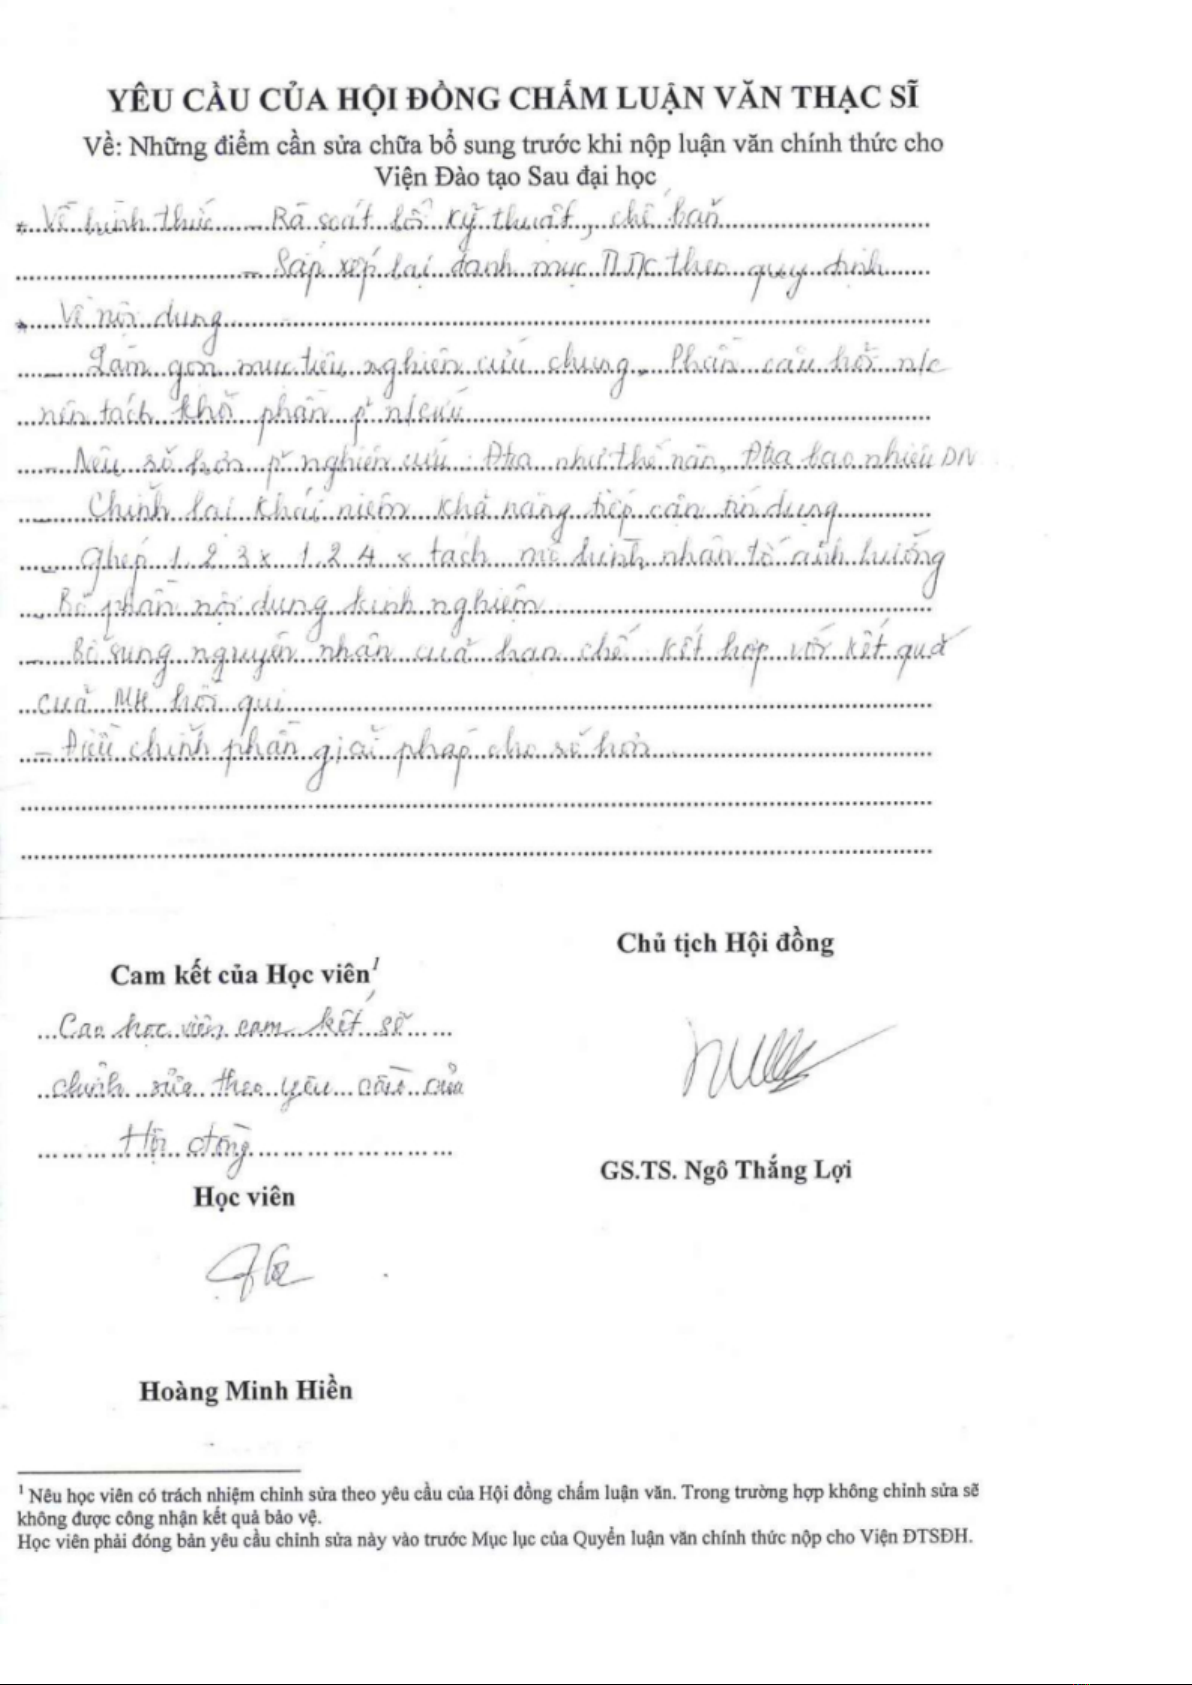 YÊU CẦU CỦA HỘI ĐỒNG CHẤM LUẬN VĂN THẠC SĨ
Về: Những điểm cần sửa chữa bổ sung trước khi nộp luận văn chính thức cho
Viện Đào tạo Sau đại học
* Về hình thức - Rà soát lỗi kỹ thuật, chế bản
- Sắp xếp lại danh mục TLTK theo quy định
* Về nội dung
- Làm gọn mục tiêu nghiên cứu chung. Phần câu hỏi n/c
nên tách khỏi phần p² n/cứu
- Nêu rõ hơn p² nghiên cứu: Đưa như thế nào, Đưa bao nhiêu DN
- Chỉnh lại khái niệm khả năng tiếp cận tín dụng
- Ghép 1.2.3 x 1.2.4 x tách mô hình nhân tố ảnh hưởng
- Bỏ phần nội dung kinh nghiệm
- Bổ sung nguyên nhân của hạn chế kết hợp với kết quả
của MH hồi qui
- Điều chỉnh phần giải pháp cho rõ hơn
Chủ tịch Hội đồng
Cam kết của Học viên¹
Cao học viên cam kết sẽ
chỉnh sửa theo yêu cầu của
Hội đồng
GS.TS. Ngô Thắng Lợi
Học viên
Hoàng Minh Hiền
¹ Nêu học viên có trách nhiệm chỉnh sửa theo yêu cầu của Hội đồng chấm luận văn. Trong trường hợp không chỉnh sửa sẽ
không được công nhận kết quả bảo vệ.
Học viên phải đóng bản yêu cầu chỉnh sửa này vào trước Mục lục của Quyển luận văn chính thức nộp cho Viện ĐTSĐH.